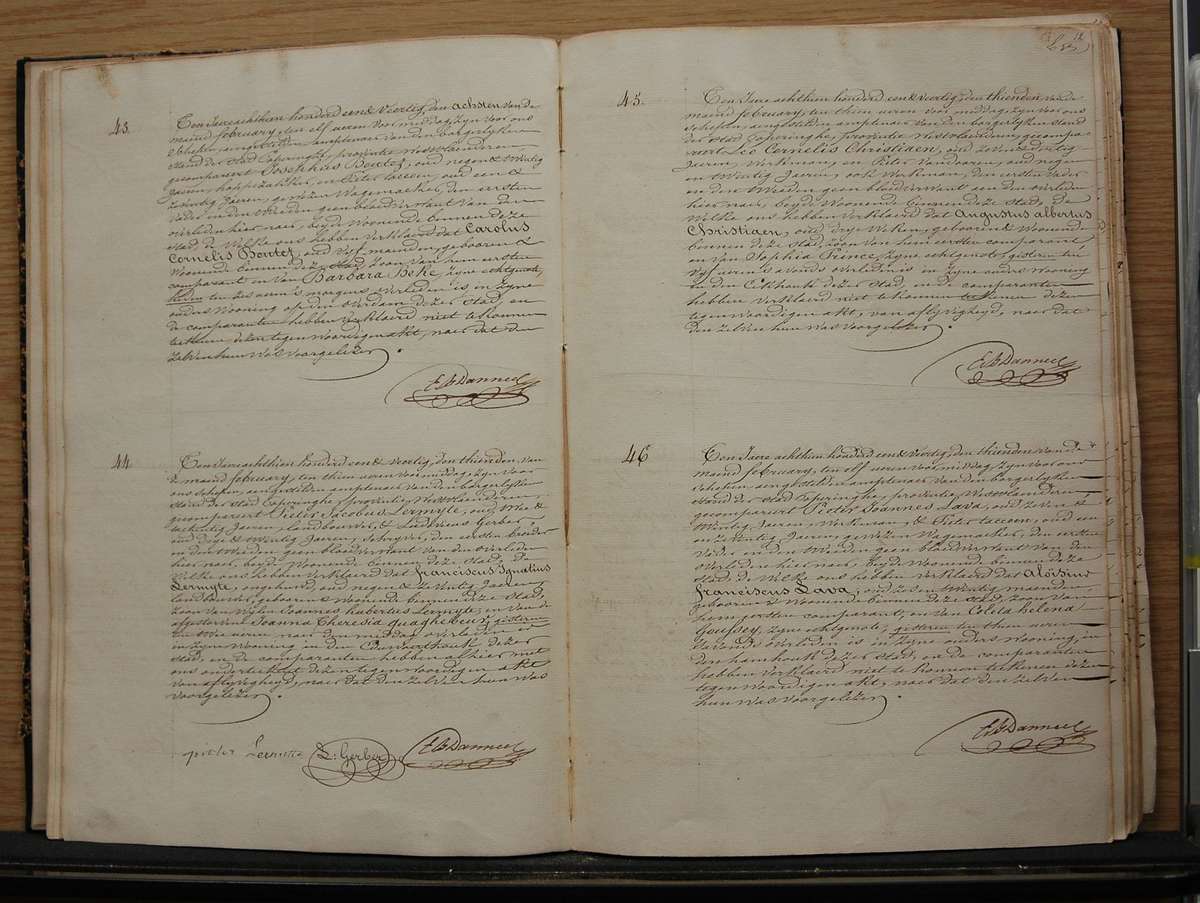 43.
Ten Jaere achthien honderd een & Veertig, den achsten van de
maend february, ten elf ueren voormiddag, zyn voor ons
schepen, aengestelden amptenaer van den borgerlyken
stand der stad Poperinghe, provintie Westvlaenderen,
gecompareert Josephus Bentez, oud negen & twintig
Jaeren, hoppezakker, en Pieter taccoen, oud een &
zeventig Jaeren, gewezen Wagemacher, den eersten
vader en den tweeden geen bloedverwant van den
overleden hier naer, beyde Woonende binnen deze
stad, de Welke ons hebben verklaerd dat Carolus
Cornelis Bentez, oud vyf maenden, gebooren &
Woonende binnen deze stad, zoon van hem eersten
comparant en van Barbara Beke, zyne echtgenote,
heden ten zes ueren 's morgens overleden is in zyne
ouders Wooning op den overdam dezer stad, en
de comparanten hebben verklaerd niet te konnen
teekenen dezen tegenwoordigen akt, naer dat den
zelven hun Was voorgelezen.
E B Danneel
44.
Ten Jaere achthien honderd een & Veertig, den thienden van
de maend february, ten thien ueren voormiddag, zyn voor
ons schepen, aengestelden amptenaer van den borgerlyken
stand der stad Poperinghe, provintie Westvlaenderen,
gecompareert Pieter Jacobus Lermyte, oud twee &
tachentig Jaeren, landbouwer, & Ludovicus Gerber,
oud drye & twintig Jaeren, schryver, den eersten broeder
en den tweeden geen bloedverwant van den overleden
hier naer, beyde Woonende binnen deze stad, de
Welke ons hebben verklaerd dat Franciscus Ignatius
Lermyte, ongehuwd, oud negen & zeventig Jaeren,
landbouwer, gebooren & Woonende binnen deze stad,
zoon van wylen Joannes hubertus Lermyte, en van de
afgestorven Joanna Theresia quaghebeur, gisteren
ten twee ueren naer den middag overleden is
in zyne Wooning in den hoek dezer
stad, en de comparanten hebben alhier met
ons onderteekent dezen tegenwoordigen akt
van aflyvigheyd, naer dat den zelven hun Was
voorgelezen.
pieter Lermitte L: Gerber E B Danneel
45.
Ten Jaere achthien honderd een & Veertig, den thienden van de
maend february, ten thien ueren voormiddag, zyn voor ons
schepen, aengestelden amptenaer van den borgerlyken stand
der stad Poperinghe, provintie Westvlaenderen, gecompa-
reert Leo Cornelis Christiaen, oud zeven & dertig
Jaeren, Werkman, en Pieter Vandooren, oud negen
en twintig Jaeren, ook Werkman, den eersten vader
en den tweeden geen bloedverwant van den overleden
hier naer, beyde Woonende binnen deze stad, de
Welke ons hebben verklaerd dat Augustus albertus
Christiaen, oud drye Weken, gebooren & Woonende
binnen deze stad, zoon van hem eersten comparant
en van Sophia Prince, zyne echtgenote, gisteren ten
vyf ueren 's avonds overleden is in zyne ouders Wooning
in den Eekhouk dezer stad, en de comparanten
hebben verklaerd niet te konnen teekenen dezen
tegenwoordigen akt, van aflyvigheyd, naer dat
den zelven hun Was voorgelezen.
E B Danneel
46
Ten Jaere achthien honderd een & Veertig, den thienden van de
maend february, ten elf ueren voormiddag, zyn voor ons
schepen, aengestelden amptenaer van den borgerlyken
stand der stad Poperinghe, provintie Westvlaenderen
gecompareert Pieter Joannes Lava, oud zeven &
twintig Jaeren, Werkman, & Pieter taccoen, oud een
en zeventig Jaeren, gewezen Wagemacher, den eersten
vader en den tweeden geen bloedverwant van den
overleden hier naer, beyde Woonende binnen deze
stad, de Welke ons hebben verklaerd dat Aloisius
franciscus Lava, oud zes en twintig maenden,
gebooren & Woonende binnen deze stad, zoon van
hem eersten comparant, en van Coleta helena
Goussey, zyne echtgenote, gisteren ten thien ueren
's avonds overleden is in zyne ouders Wooning, in
den hamhoek dezer stad, en de comparanten
hebben verklaerd niet te konnen teekenen dezen
tegenwoordigen akt, naer dat den zelven
hun Was voorgelezen.
E B Danneel